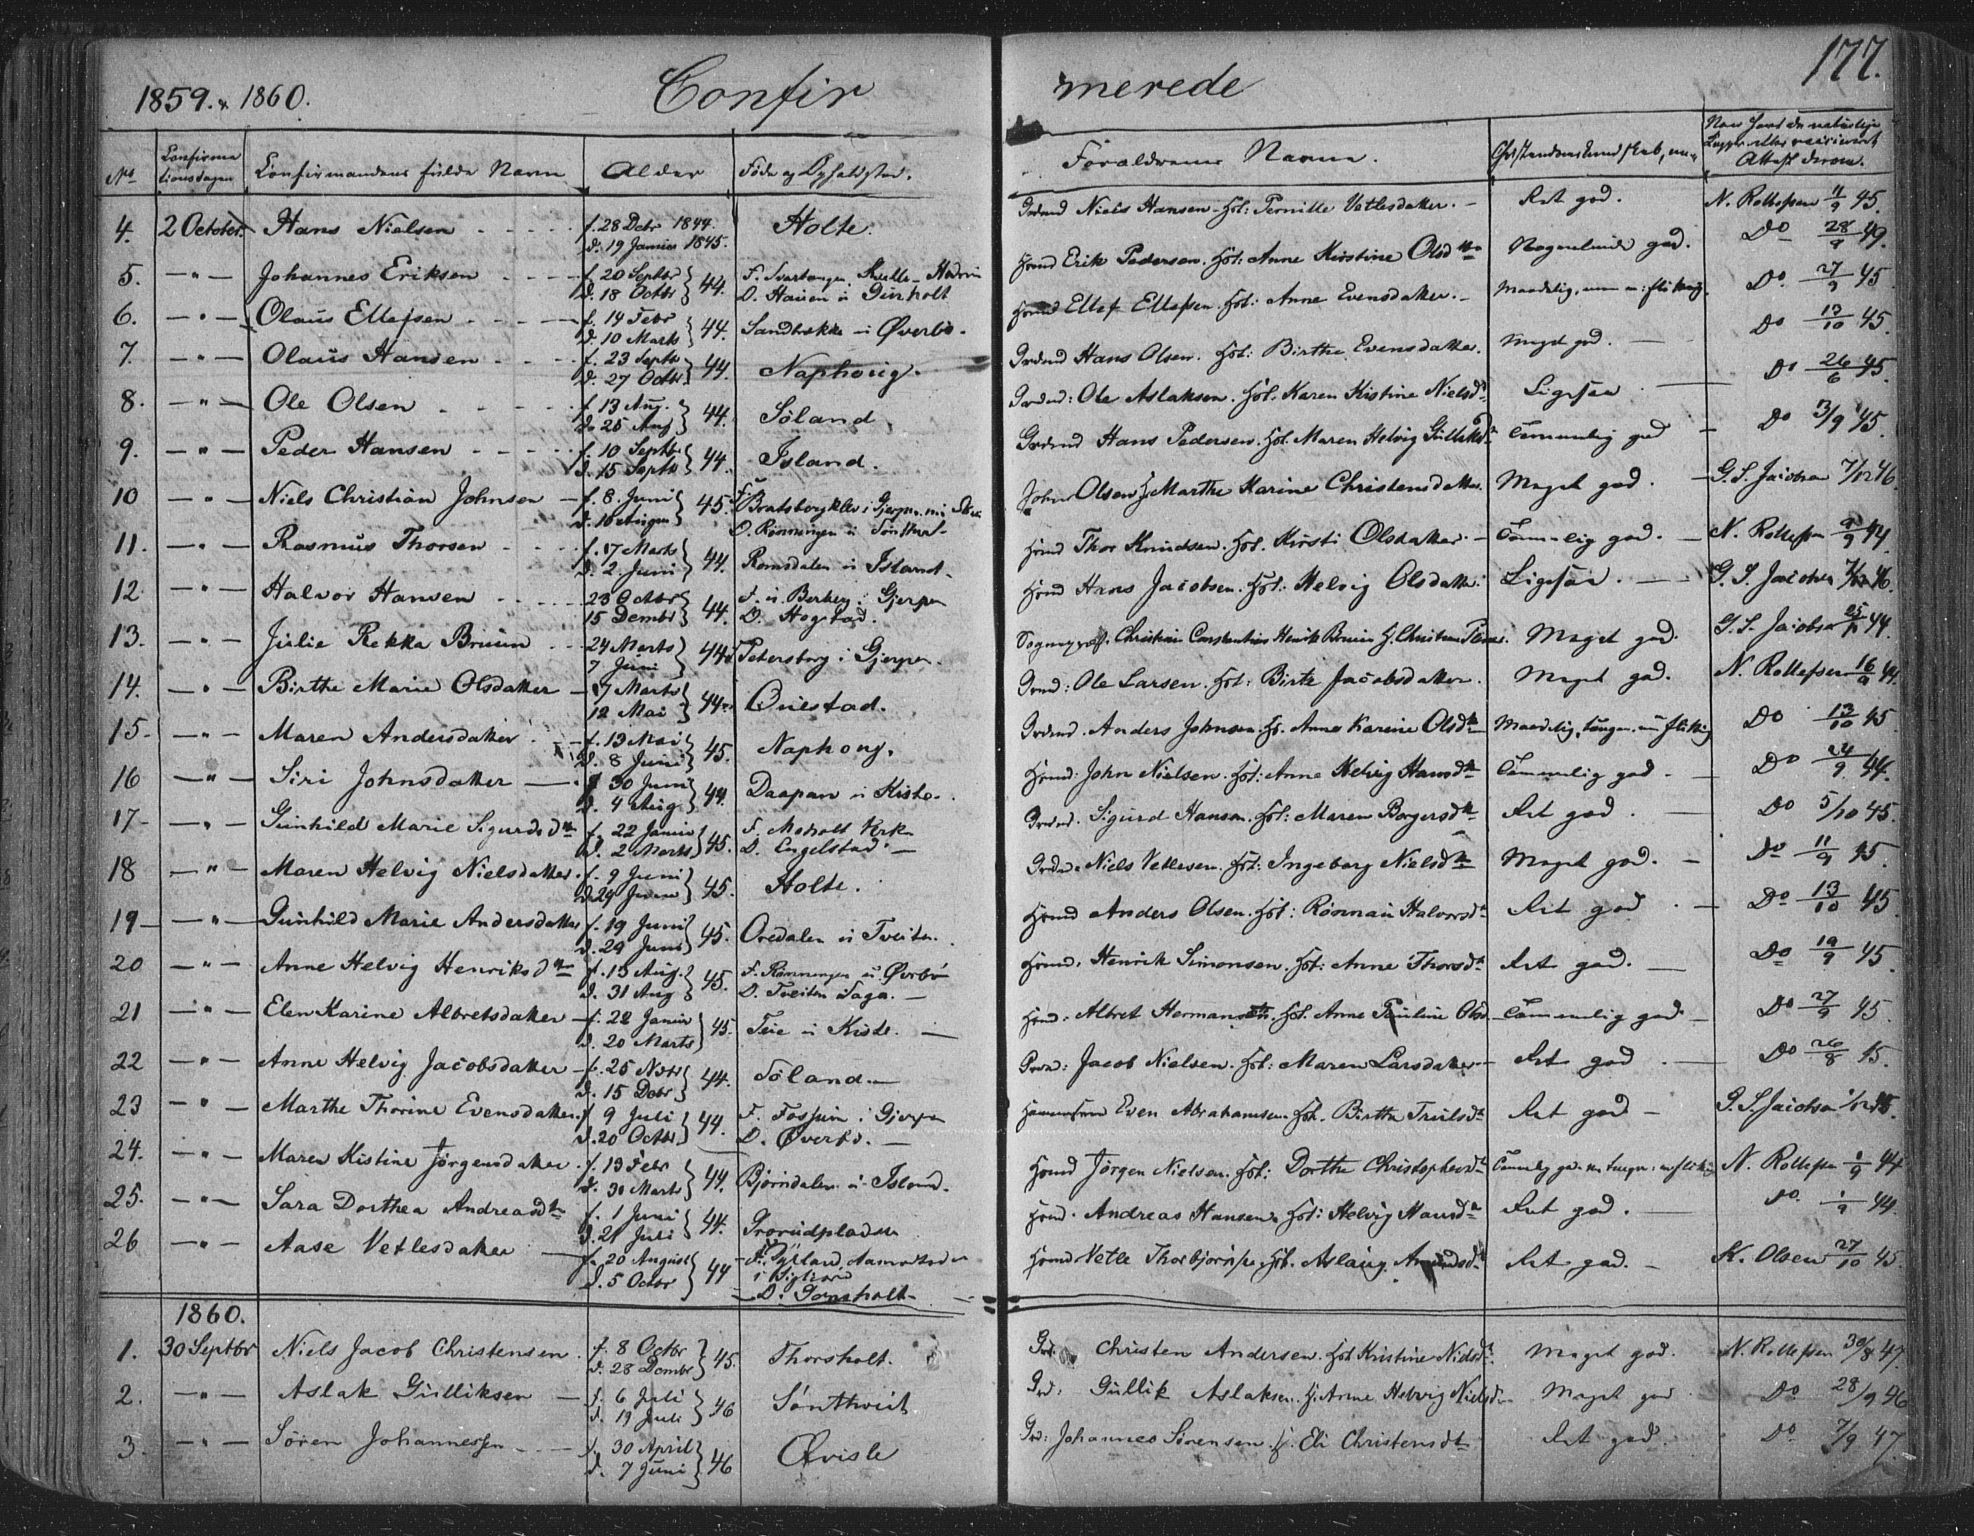 1859. & 1860. Confirmerede 177.
No Confirmationsdagen Confirmandens fulde Navn Alder Føde og Opholdssted. Forældrenes Navne. Christendomskundskab,
4. 2 October Hans Nielsen f. 28 Debr 1844 d. 19 Januar 1845. Holte. Niels Hansen. Hst: Pernille Vetlesdatter. Ret god. N. Rollefsen 11/9 45.
5. — " — Johannes Eriksen f. 20 Septbr d. 18 Octbr 44. Erik Pedersen. Hst: Anne Kirstine Olsd Nogenlunde god. Do 28/9 49.
6. — " — Olaus Ellefsen f. 14 Febr d. 10 Marts 44. Sandbækk u Øverbø. Ellef Ellefsen Hst: Anne Evensdatter. Maadelig, Do. 27/9 45
7. — " — Olaus Hansen f. 23 Septbr d. 27 Octbr. 44. Naphoug. Hans Olsen. Hst: Birthe Evensdatter. Meget god. Do 13/10 45.
8. — " — Ole Olsen f. 13 Aug. d. 25 Aug 44. Søland. Ole Aslaksen. Hst. Karen Kistine Nielsd Ligesaa Do 26/6 45.
9. — " — Peder Hansen f. 10 Septbr d. 15 Septbr 44. Island. Hans Pedersen. Hst. Maren Helvig Gulliksd Temmelig god Do 45.
10 — " — Niels Christian Johnsen f. 8. Juni 45. F. Bratsbergklev i Gjerpen D. Rønningen u Sønthvet John Olsen H. Marthe Karine Christensdatter. Meget god. G. S. Jacobsen 7/12 46.
11. — " — Rasmus Thorsen f. 17 Marts d. 2. Juni 44. Romsdalen u Island. Thor Knudsen. Hst. Kirsti Olsdatter. Temmelig god. N. Rollefsen 44.
12. — " — Halvor Hansen 23 Octbr 15 Dembr 44. Gjerpen D. Hogstad. Hans Jacobsen. Hst: Helvig Olsdatter Ligesaa. G. S. Jacobsen
13. — " — Julie Rekka Bruun 24 Marts 7 Juni 44. Petersborg i Gjerpen. Christian Constantius Henrik Bruun Meget god. G. S. Jacobsen 44.
14. — " — Birthe Marie Olsdatter 17 Marts 12 Mai 44. Questad. Ole Larsen. Hst: Birte Jacobsdatter. Meget god. N. Rollefsen 16/9 44.
15. — " — Maren Andersdatter f. 13 Mai d. 8 Juni 45. Naphoug. Anders Johnsen. Hst. Anne Karine Olsd Maadelig, Do 13/10 45
16 — " — Siri Johnsdatter f 30 Juni d. 4 Aug 44. Daapan u Kiste. John Nielsen. Hst: Anne Helvig Hansd Temmelig god. Do 24/9 44.
17 — " — Gunhild Marie Sigurdsd f. 22 Januar d. 2 Marts 45. D. Engelstad. Sigurd Hansen. Hst: Maren Borgersd Ret god. Do 5/10 45.
18 — " — Maren Helvig Nielsdatter. f. 9 Juni d. 29 Juni 45. Holte. Niels Vetlesen. Hst: Ingeborg Nielsd Meget god. Do 11/9 45
19 — " — Gunhild Marie Andersdatter f. 19 Juni d. 29 Juni 45. Oredalen u Tveiten. Anders Olsen. Hst: Halvorsd Ret god. Do 13/10 45
20 — " — Anne Helvig Henriksd f. 13 Aug. d. 31 Aug 45. F. Rønningen u. Øverbø D. Tveiten Saga. Henrik Simonsen. Hst: Anne Thorsd Ret god. Do 19/9 45.
21 — " — Elen Karine Albretsdatter f. 22 Januar d. 20 Marts 45. Teie u Kiste. Albret Hermansen. Hst. Anne Pauline Olsd. Temmelig god Do 27/9 45.
22 — " — Anne Helvig Jacobsdatter f. 25 Novbr d. 15 Debr 44. Søland. Jacob Nielsen. Hst: Maren Larsdatter Ret god. Do 26/8 45.
23 — " — Marthe Thorine Evensdatter. f 9 Juli d. 20 Octbr 44. F. Fossum i Gjerpen D. Øverbø. Even Abrahamsen Hst. Birthe Trulsd Ret god G. S. Jacobsen
24. — " — Maren Kistine Jørgensdatter. f. 13 Febr d. 30 Marts 44. Bjørndalen u. Island. Jørgen Nielsen. Hst: Dorthe Christophersd N. Rollefsen 1/9 44
25. — " — Sara Dorthea Andreasd f. 1 Juni d. 21 Juli 44. Grorudpladsen Andreas Hansen. Hst: Helvig Hansd Ret god. Do. 1/9 44.
26 — " — Aase Vetlesdatter f. 20 August d. 5 Octbr 44 D. Gonsholt. Vetle Thorbjørns. Hst. Aslaug Amundsd Ret god. K. Olsen 27/10 45.
1860.
1. 30 Septbr Niels Jacob Christensen. f. 8 Octbr d. 28 Dembr 45. Thorsholt. Christen Andersen. Hst Kristine Nielsd. Meget god. N. Rollefsen 30/8 47.
2. — " — Aslak Gulliksen f. 6 Juli d. 19 Juli 46 Sønthveit Gullik Aslaksen. H. Anne Helvig Nielsd Meget god Do 28/9 46
3. — " — Søren Johannessen f. 30 April d. 7 Juni 46 Øvisle Johannes Sørensen. H. Eli Christensd Ret god. Do 7/9 47.